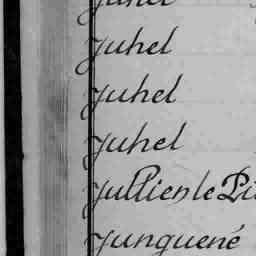 Juhel
Juhel
Juhel
Juhel
Jullien le
Junguené